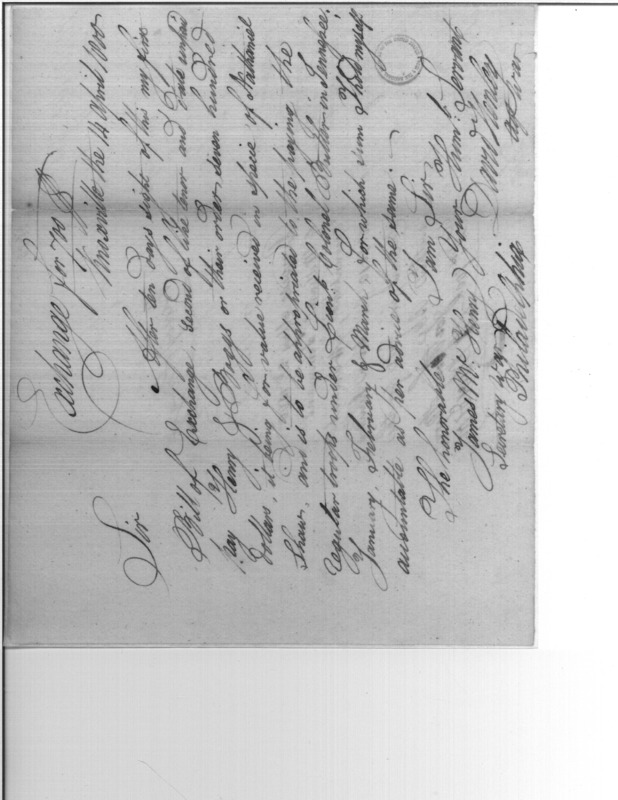 Exchange for 700 $
Knoxville the 14 April 1800
Sir
After ten days sight of this my first
Bill of Exchange, second of like tenor and date unpaid
pay Henry & Boggs or their order seven hundred
Dollars, it being for value received in specie of Nathaniel
Shaw, and is to be appropriated to the paying the
regular troops under Lieut. Colonel Butler in Tennessee
January, February & March for which sum I hold myself
accountable as per advice of the same.
I am Sir
The honorable Your Humb. Servant
James McHenry David Henley
Secretary of War Agt War
Philadelphia